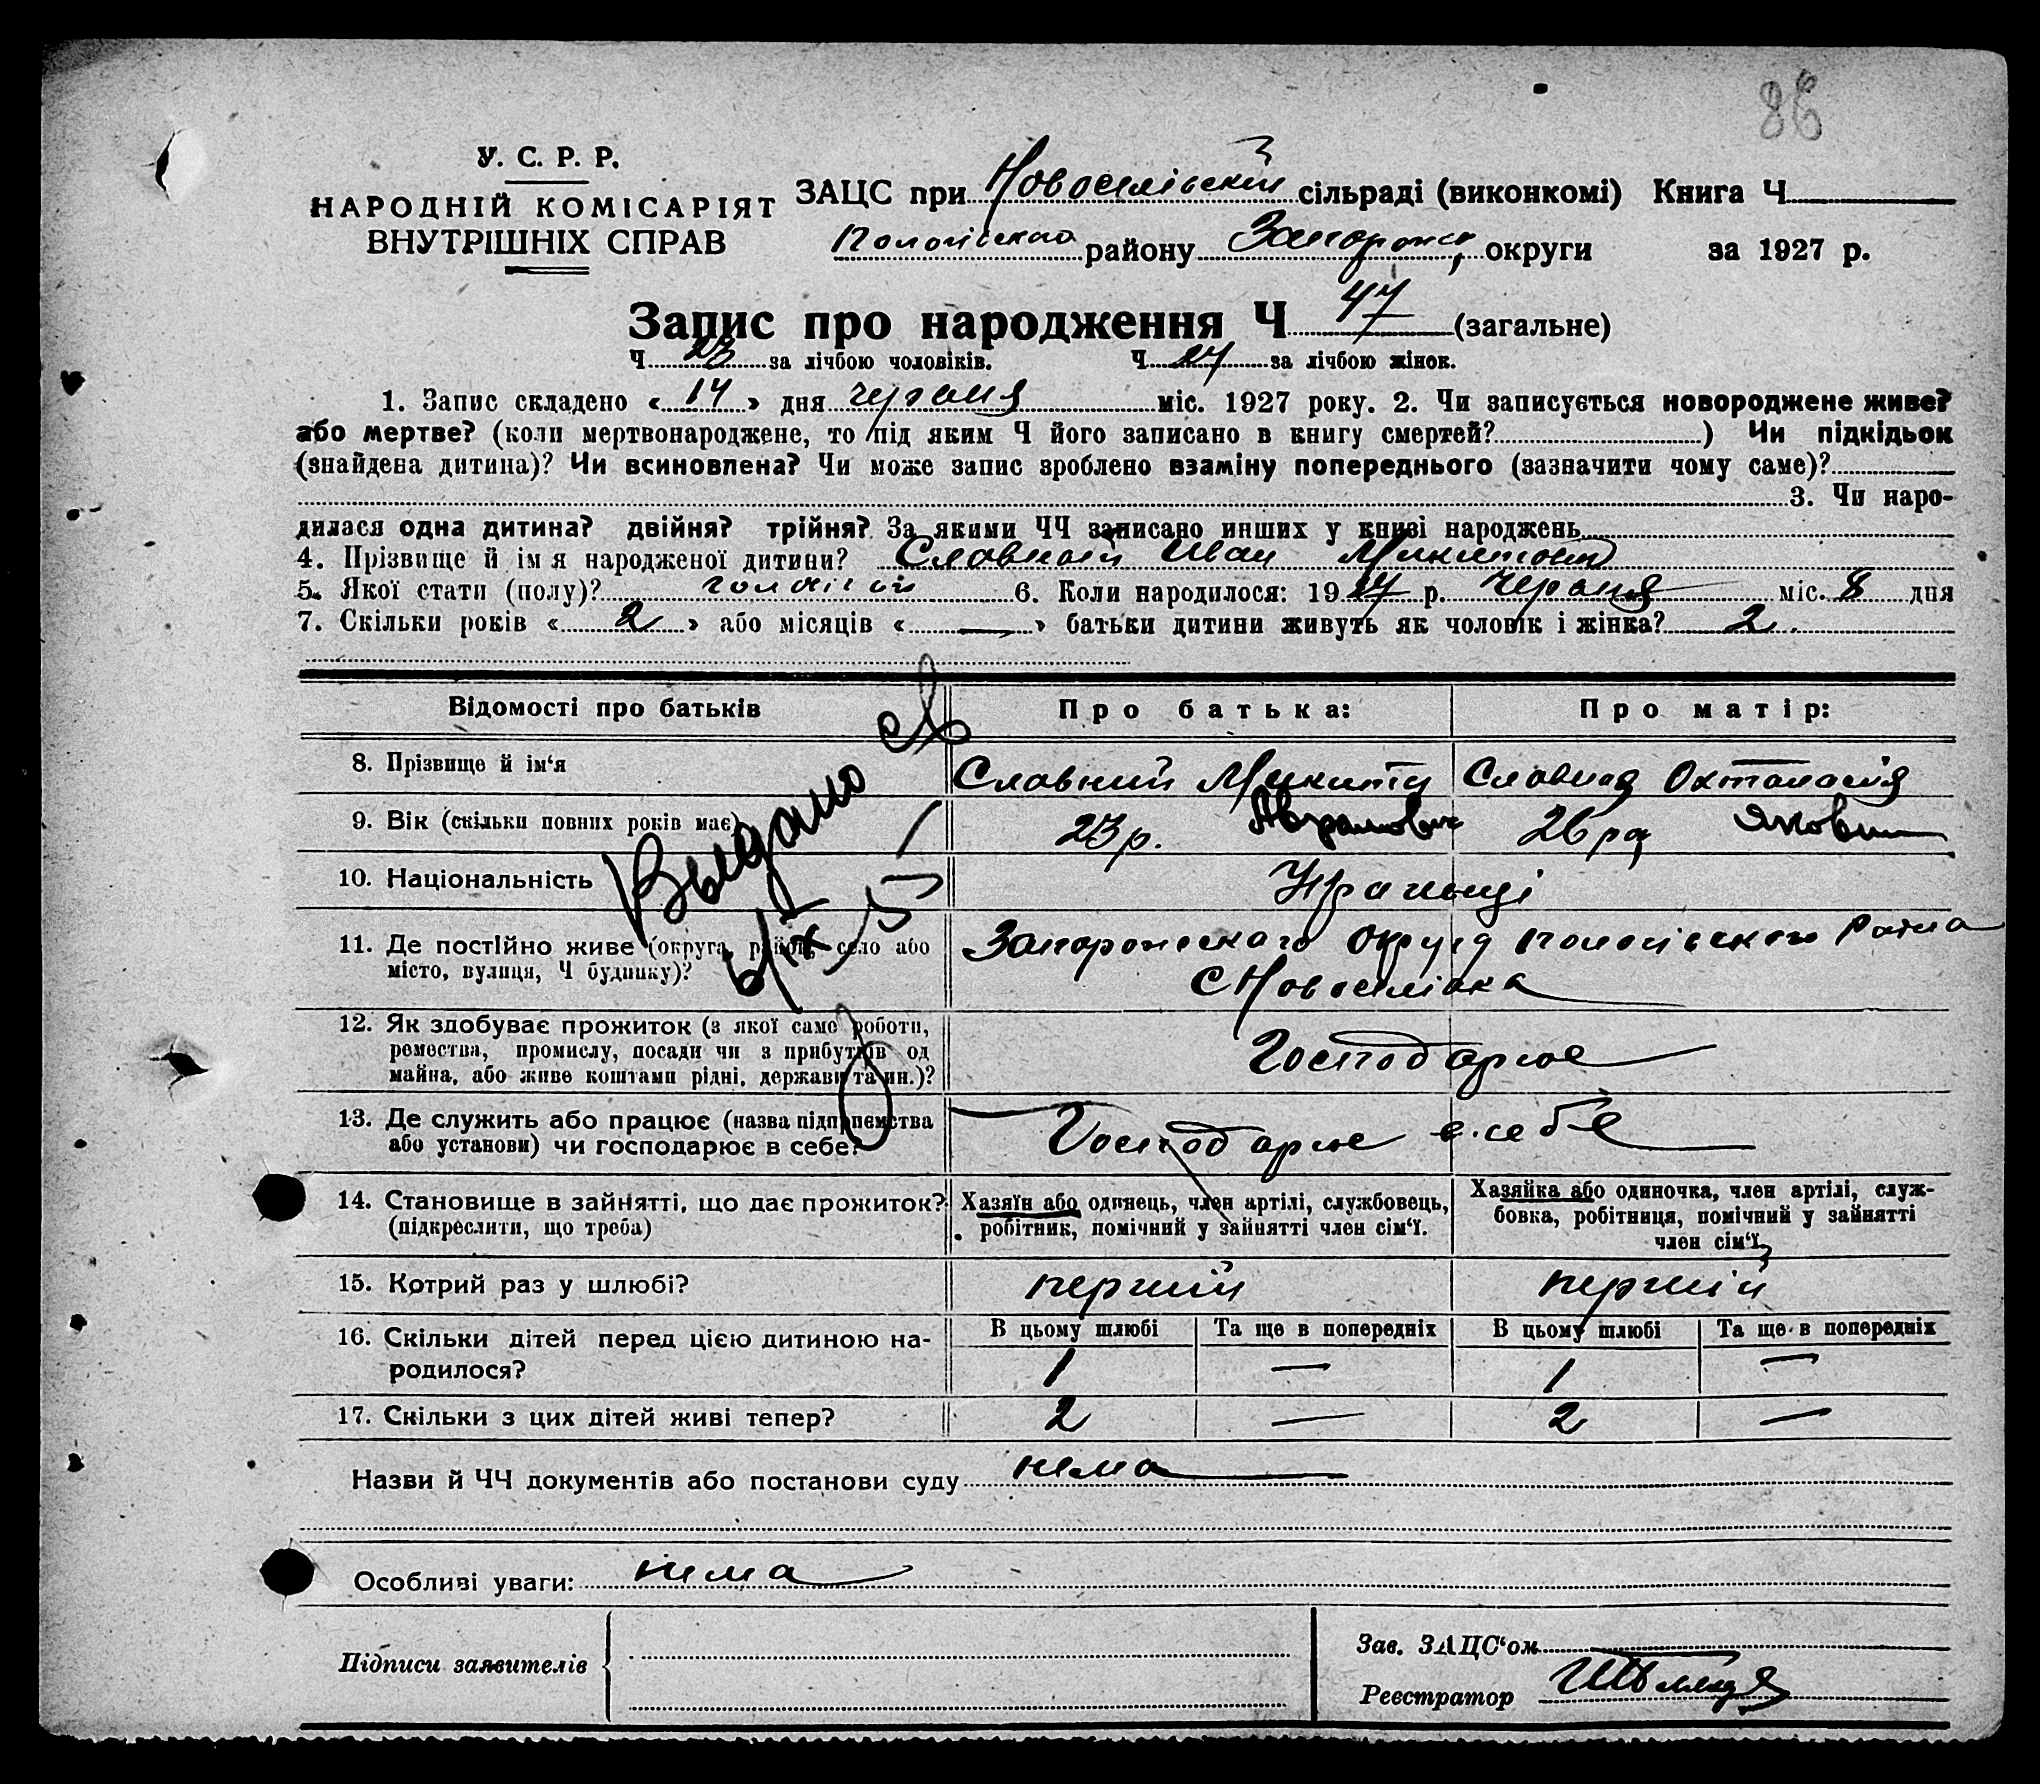 86
У. С. Р. Р.
НАРОДНІЙ КОМІСАРІЯТ
ВНУТРІШНІХ СПРАВ
ЗАЦС при Новоселівській сільраді (виконкомі) Книга Ч
Пологівського району Запорожск округи за 1927 р.
Запис про народження Ч 47 (загальне)
Ч 23 за лічбою чоловіків. Ч 24 за лічбою жінок.
1. Запис складено « 14 » дня червня міс. 1927 року. 2. Чи записується новороджене живе?
або мертве? (коли мертвонароджене, то під яким Ч його записано в книгу смертей? ) Чи підкідьок
(знайдена дитина)? Чи всиновлена? Чи може запис зроблено взаміну попереднього (зазначити чому саме)?
3. Чи наро-
дилася одна дитина? двійня? трійня? За якими ЧЧ записано инших у книзі народжень
4. Прізвище й ім я народженої дитини? Славний Иван Микитович
5. Якої стати (полу)? чоловічой 6. Коли народилося: 1927 р. червня міс. 8 дня
7. Скільки років « 2 » або місяців « — » батьки дитини живуть як чоловік і жінка? 2.
Відомості про батьків Про батька: Про матір:
8. Прізвище й ім‘я Славний Микита Славная
Аврамович Яковл
9. Вік (скільки повних років має) 23 р. 26 ро
10. Національність Украинці
11. Де постійно живе (округа, район, село або Запорожского округа Пологівского Района
місто, вулиця, Ч будинку)? С Новоселівка
Выдано
6/IX
12. Як здобуває прожиток (з якої само роботи,
ремества, промислу, посади чи з прибутків од Господарює
майна, або живе коштами рідні, держави та ин.)?
13. Де служить або працює (назва підприємства Господарює в себе
або установи) чи господарює в себе?
14. Становище в зайнятті, що дає прожиток? Хазяїн або одинець, член артілі, службовець, Хазяйка або одиночка, член артілі, служ-
(підкреслити, що треба) робітник, помічний у зайнятті член сім‘ї. бовка, робітниця, помічний у зайнятті
член сім‘ї,
15. Котрий раз у шлюбі? перший перший
16. Скільки дітей перед цією дитиною на- В цьому шлюбі Та ще в попередніх В цьому шлюбі Та ще в попередніх
родилося? 1 — 1 —
17. Скільки з цих дітей живі тепер? 2 — 2 —
Назви й ЧЧ документів або постанови суду нема
Особливі уваги: нема
Підписи заявителів
Зав. ЗАЦС‘ом
Реєстратор